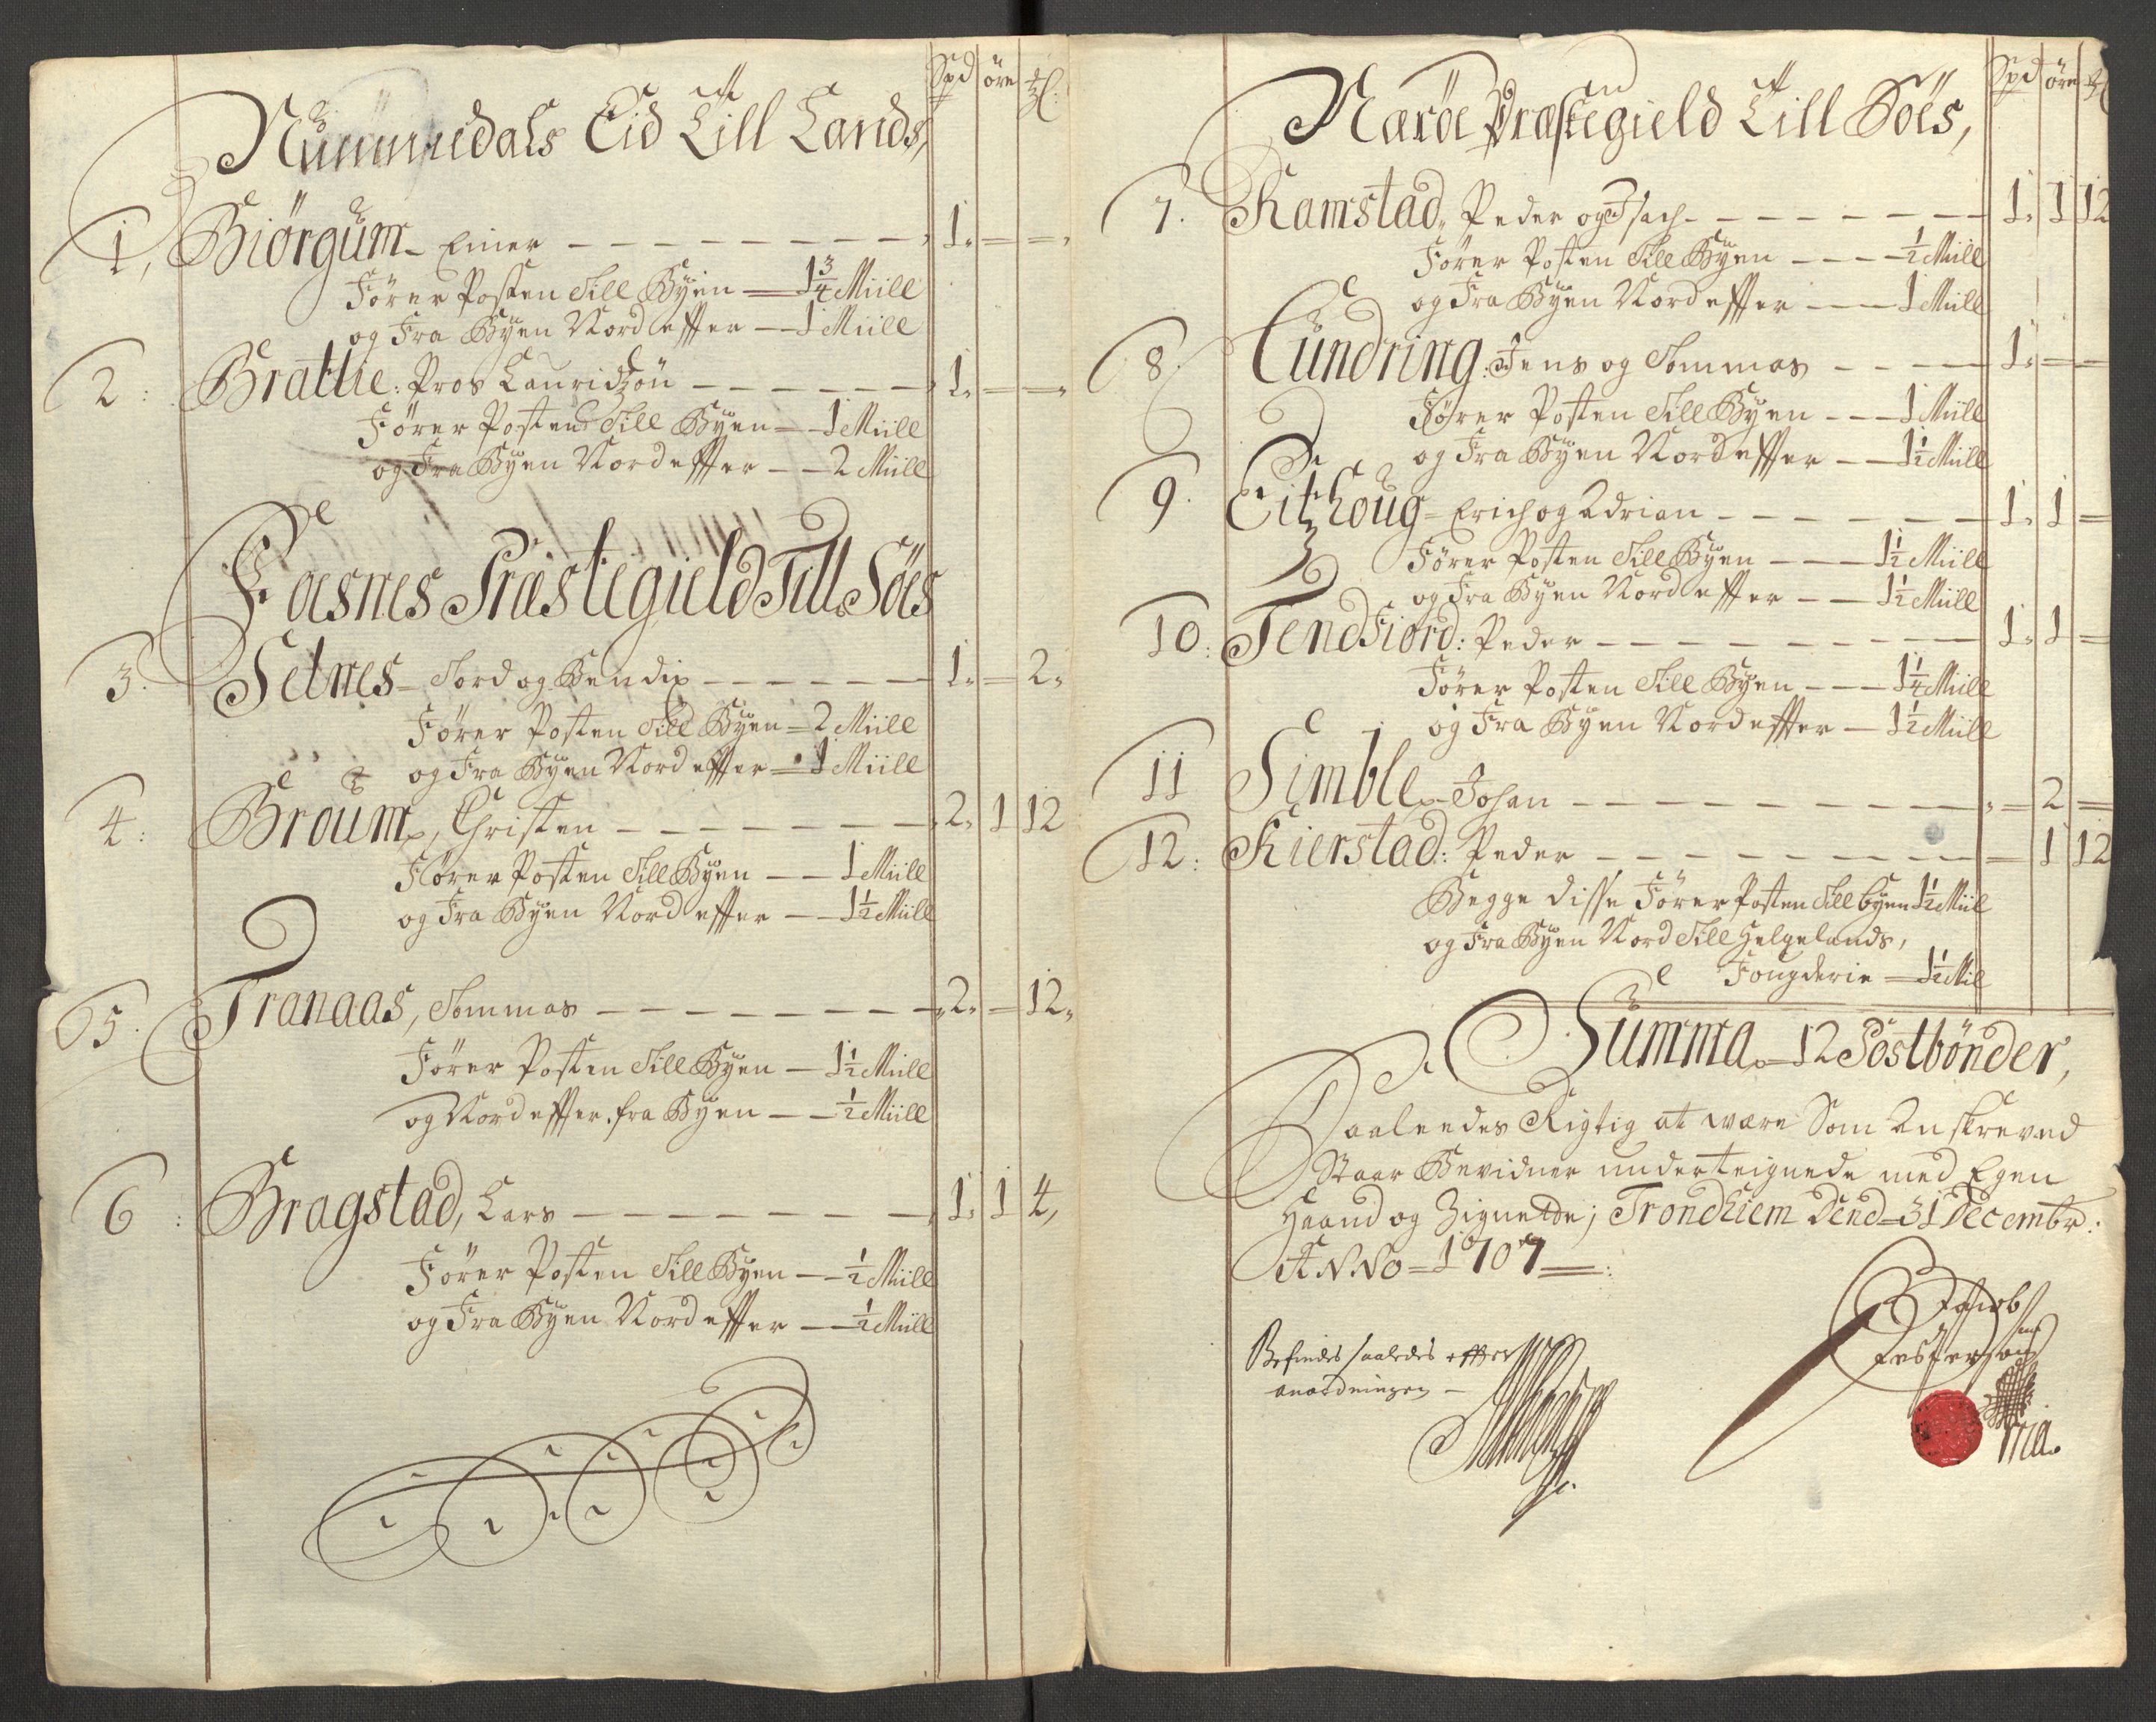 Spd öre
Nummedals Eid Till Lands,
1, Biörgum - Einer - - - - - - - - 1. = =
Fører Posten Till Byen = 1 3/4 Miill
og Fra Byen Nord effter - 1 Miill
2: Brattlie: Pros Lauridzøn - - - - - - 1. = =
Fører Posten Till Byen - 1 Miill
og Fra Byen Nord effter - - 2 Miill
Fosnes Præstegield Till Söes
3. Setnes - Tord og Bendix - - - - - - 1. = 2.
Fører Posten Till Byen = 2 Miill
og Fra Byen Nord effter = 1 Miill
4: Broum, Christen - - - - - - - 2. 1 12
Fører Posten Till Byen - - 1 Miill
og Fra Byen Nord effter - - 1 1/2 Miill
5. Tranaas, Tommas - - - - - - - 2. = 12.
Fører Posten Till Byen - 1 1/2 Miill
og Nord effter fra Byen - - 1/2 Miill
6: Bragstad, Lars - - - - - - - - 1. 1 4,
Fører Posten Till Byen - - 1/2 Miill
og Fra Byen Nord effter - - 1/2 Miill
Spd öre
Næröe Præstegield Till Söes,
7. Ramstad, Peder og Isach - - - - - - - 1. 1 12
Fører Posten Till Byen - - - 1/2 Miill
og Fra Byen Nord effter - - 1 Miill
8. Lundring: Jens og Tommas - - - - 1. = =
Fører Posten Till Byen - - - 1 Miill
og Fra Byen Nord effter - - 1 1/2 Miill
9. Eithoug - Erich og Adrian - - - - - - 1. 1 =
Fører Posten Till Byen - - - 1 1/2 Miill
og Fra Byen Nord effter - - 1 1/2 Miill
10: Tendfiord: Peder - - - - - - - - 1. 1 =
Fører Posten Till Byen - - - 1 1/4 Miill
og Fra Byen Nord effter - 1 1/2 Miill
11 Simble - Johan - - - - - - - - - = 2 =
12: Kierstad: Peder - - - - - - - - = 1 12
Begge disse Fører Posten Till byen 1 1/2 Miil
og Fra Byen Nord Till Helgelands,
Fougderie = 1 1/2 Mil
Summa = 12 Postbönder,
Saaleedes Rigtig at være Som Anskreved
Staar Bevidner underteignede med Egen
Haand og Zignette; Trondhiem Dend = 31 Decembr:
ANNo = 1707 =:
Befindes saaledes effter
anordningen -
Jacob
Jesperson
mia.